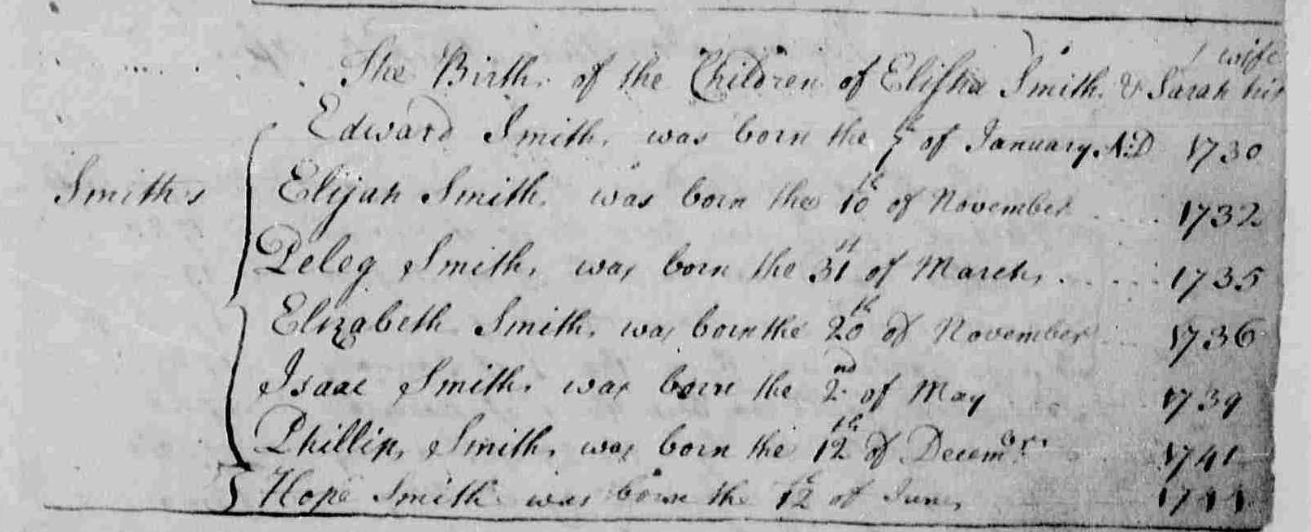 wife
The Birth of the Children of Elisha Smith & Sarah his
Edward Smith was born the 7th of January A:D 1730
Smiths
Elijah Smith was born the 10th of November 1732
Peleg Smith was born the 31st of March 1735
Elizabeth Smith was born the 20th of November 1736
Isaac Smith was born the 2nd of May 1739
Phillip Smith was born the 12th of Decembr 1741
Hope Smith was born the 12th of June 1744